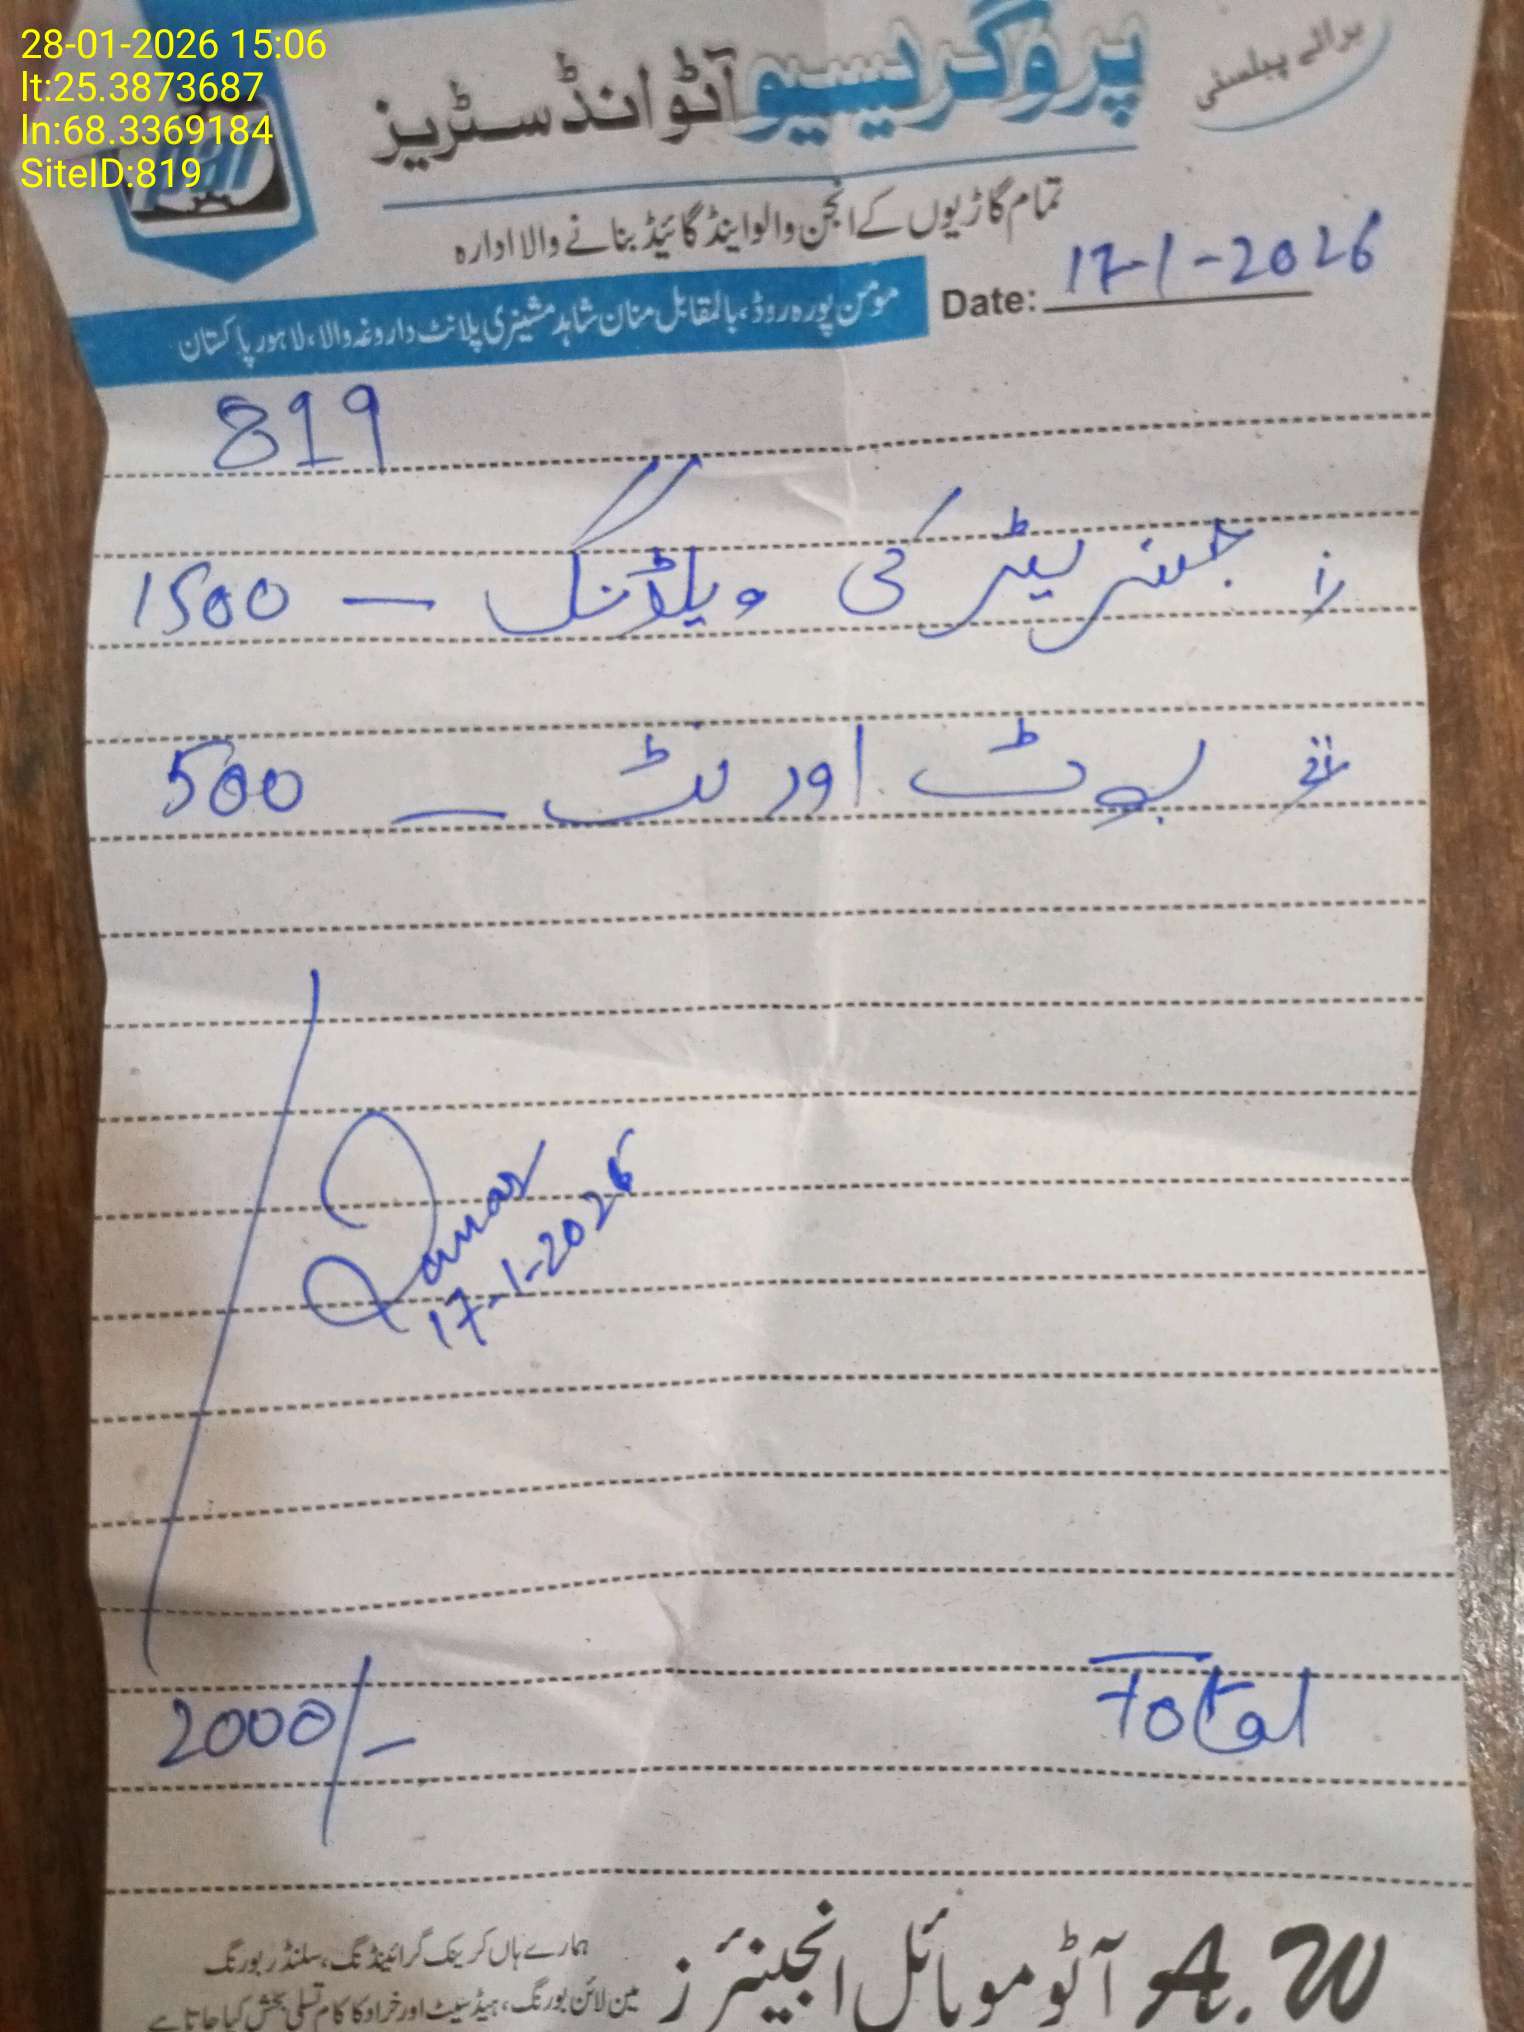 28-01-2026 15:06
lt:25.3873687
ln:68.3369184
SiteID:819
برائے پبلسٹی
پروگریسیو آٹو انڈسٹریز
تمام گاڑیوں کے انجن والو اینڈ گائیڈ بنانے والا ادارہ
Date: 17-1-2026
مومن پورہ روڈ، بالمقابل منان شاہد مشینری پلانٹ داروغہ والا، لاہور پاکستان
819
جنریٹر کی ویلڈنگ — 1500
بوٹ اور نٹ — 500
Qamar
17-1-2026
Total 2000/-
A.W آٹو موبائل انجینئرز
ہمارے ہاں کرینک گرائینڈنگ، سلنڈر بورنگ
مین لائن بورنگ، ہیڈ سیٹ اور خراد کا کام تسلی بخش کیا جاتا ہے